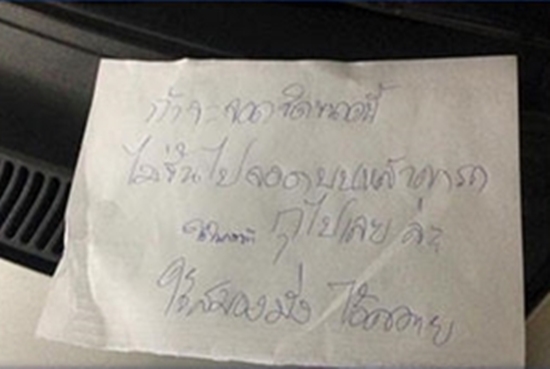 ถ้าจะจอดชิดขนาดนี้
ไม่ขึ้นไปจอดบนหลังคารถ
กูไปเลย ล่ะ
ใช้สมองมั่ง ไอ้ควาย